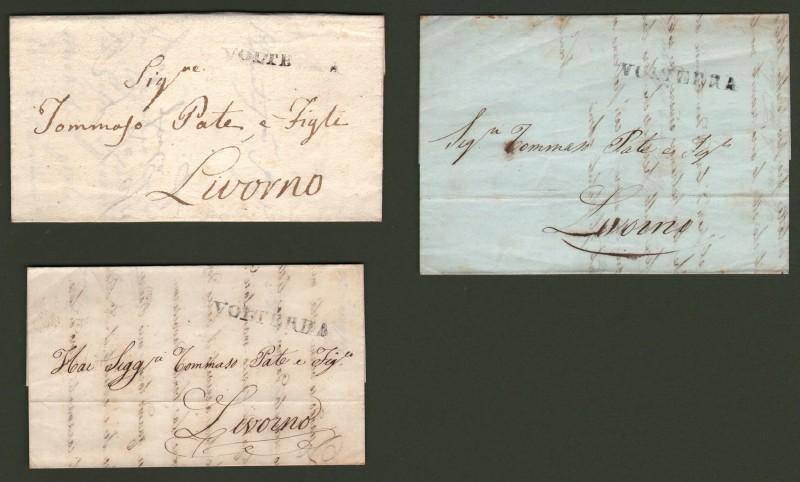 VOLTERRA
Sig.re
Tommaso Pate e Figli
Livorno
VOLTERRA
Sig.ri Tommaso Pate e Figli
Livorno
VOLTERRA
Sigg.ri Tommaso Pate e Fig.i
Livorno